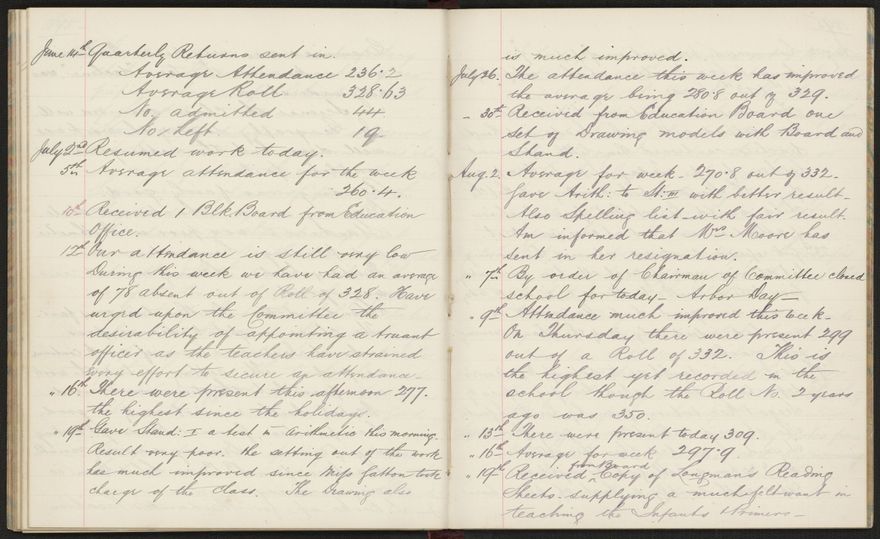 June 14th Quarterly Returns sent in.
Average Attendance 236.2
Average Roll 328.63
No. admitted 44
No. left 19.
July 2nd Resumed work today.
5th Average attendance for the week
260.4.
10th Received 1 Blk. Board from Education
Office.
12th Our attendance is still very low
During this week we have had an average
of 78 absent out of Roll of 328. Have
urged upon the Committee the
desirability of appointing a truant
officer as the teachers have strained
every effort to secure an attendance.
" 16th There were present this afternoon 277.
the highest since the holidays.
" 19th Gave Stand: I a test in Arithmetic this morning.
Result very poor. the setting out of the work
has much improved since Miss took
charge of the class. The Drawing also
is much improved.
July 26. The attendance this week has improved
the average being 280.8 out of 329.
- 30th Received from Education Board one
set of Drawing models with Board and
Stand.
Aug. 2. Average for week - 270.8 out of 332.
Gave Arith: to St: III with better result -
Also Spelling list with fair result.
Am informed that Mrs Moore has
sent in her resignation.
" 7th By order of Chairman of Committee closed
school for today - Arbor Day -
" 9th Attendance much improved this week -
On Thursday there were present 299
out of a Roll of 332. This is
the highest yet recorded in the
school though the Roll No. 2 years
ago was 350.
" 13th There were present today 309.
" 16th Average for week 297.9
" 19th Received from Board Copy of Longman's Reading
Sheets - supplying a much felt want in
teaching the Infants & Primers -